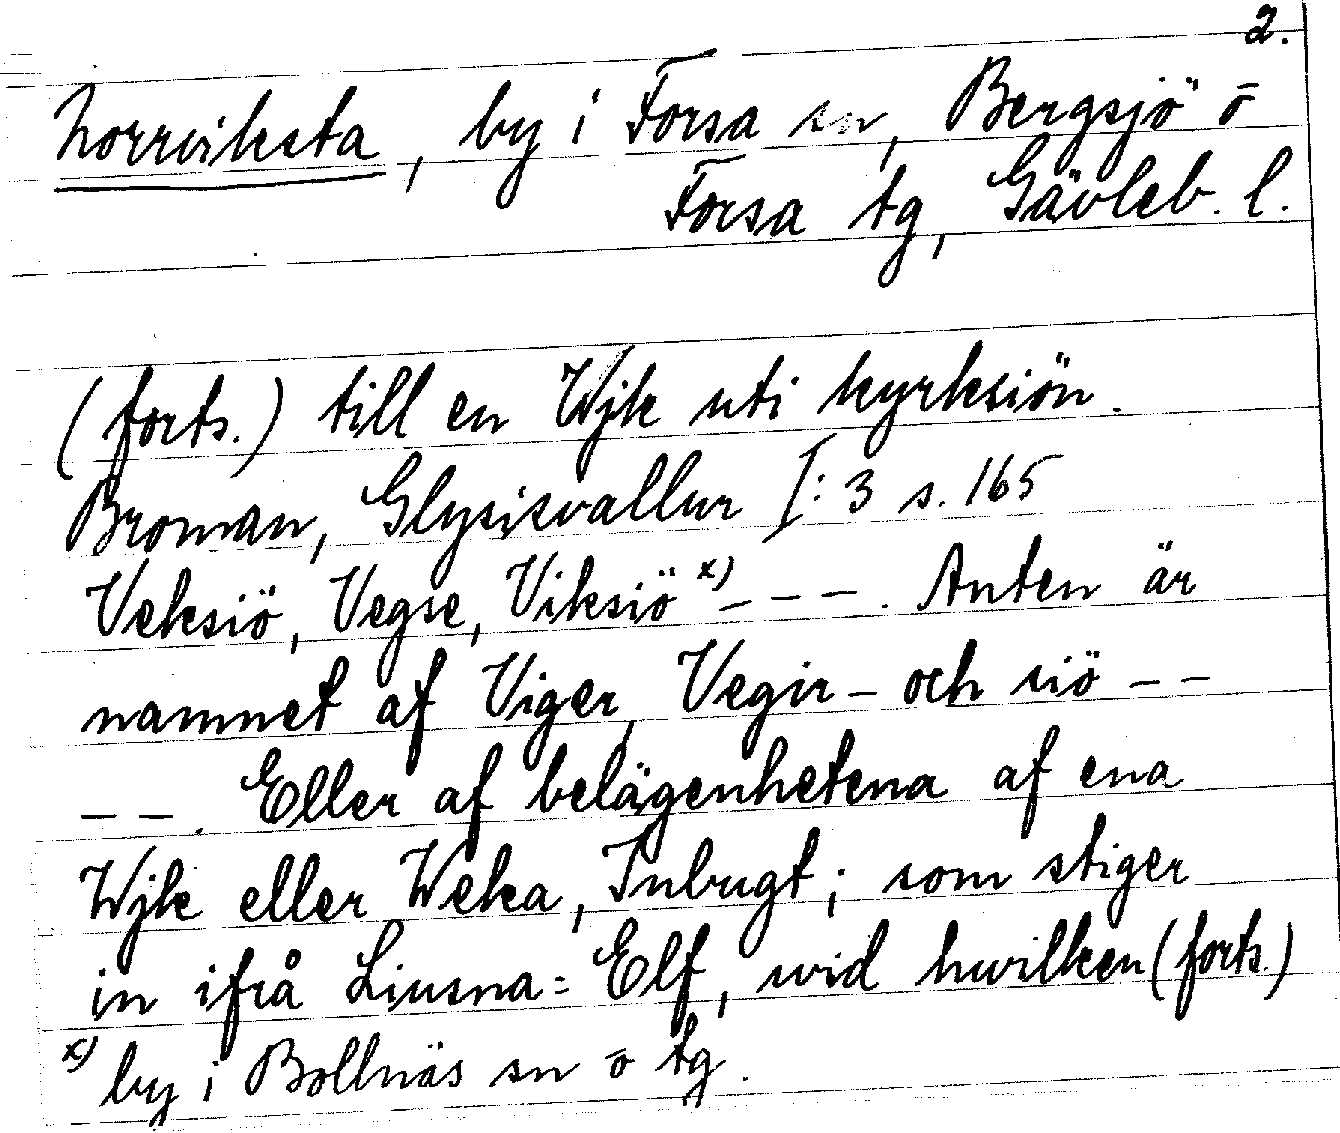 2.
Norrviksta, by i Forsa sn, Bergsjö o
Forsa tg, Gävleb. l.
(forts.) till en Wjk uti kyrksiön.
Broman, Glysisvallur I: 3 s. 165
Veksiö, Vegse, Viksiö x) – – – . Anten är
namnet af Viger, Vegir – och siö – –
– – . Eller af belägenhetena af ena
Wjk eller Weka, Inbugt; som stiger
in ifrå Liusna= Elf, wid hwilken (forts.)
x) by i Bollnäs sn o tg.